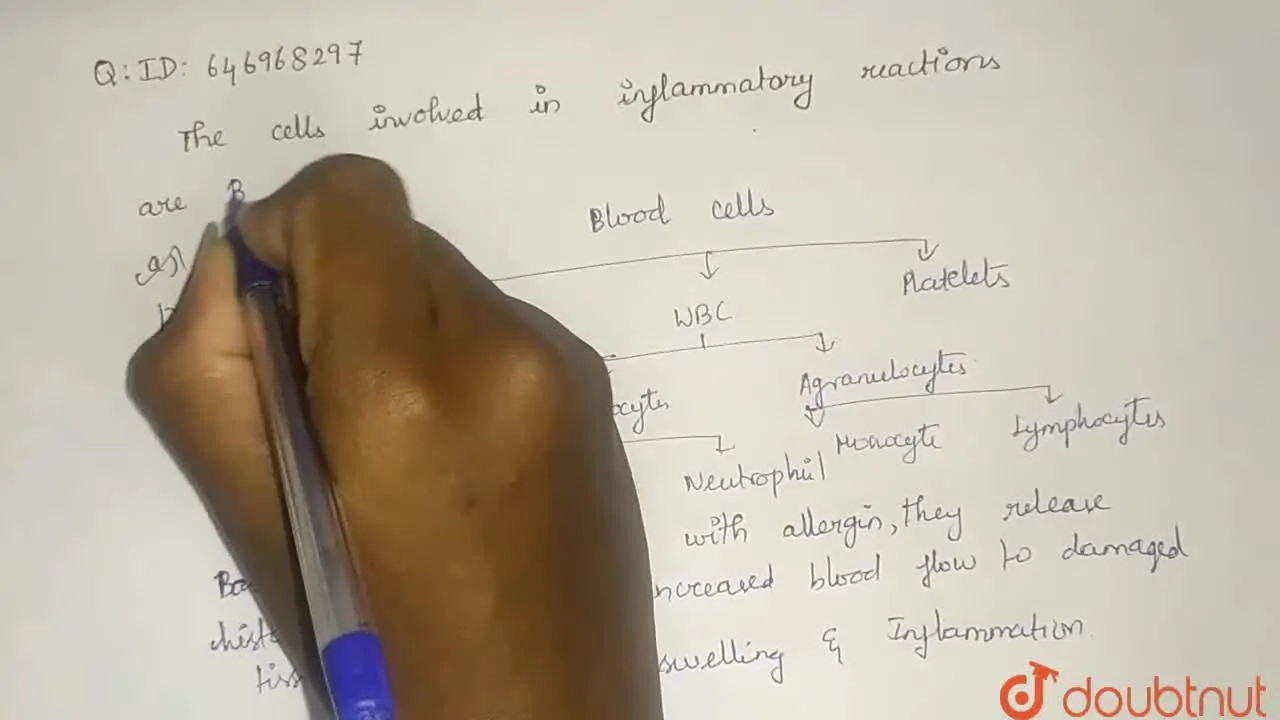 Q:ID: 646968297
The cells involved in inflammatory reactions
are B
Blood cells
Platelets
WBC
Agranulocytes
Monocyte Lymphocytes
Neutrophil
with allergin, they release
increased blood flow to damaged
swelling & Inflammation.
doubtnut